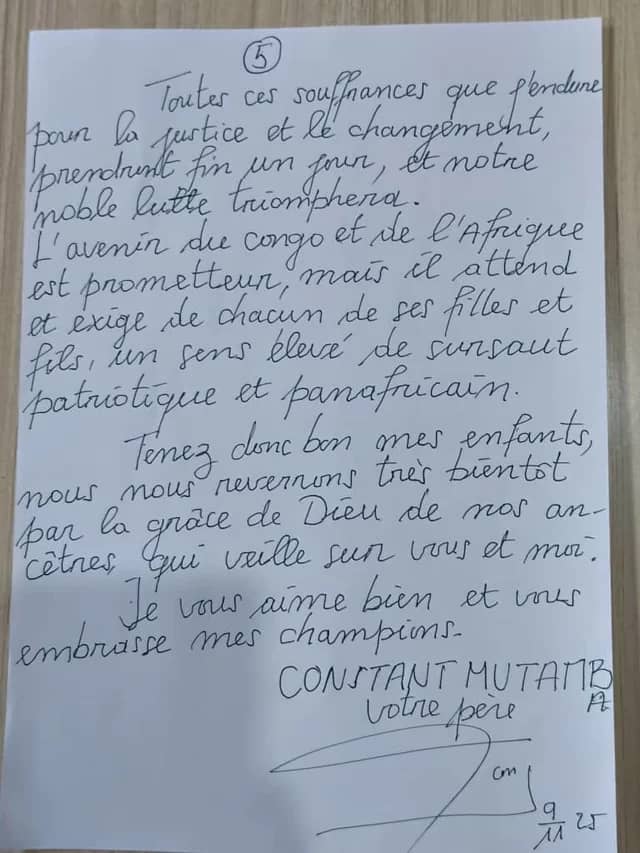 5
Toutes ces souffrances que j'endure
pour la justice et le changement,
prendront fin un jour, et notre
noble lutte triomphera.
L'avenir du congo et de l'Afrique
est prometteur, mais il attend
et exige de chacun de ses filles et
fils, un sens élevé de sursaut
patriotique et panafricain.
Tenez donc bon mes enfants,
nous nous reverrons très bientôt
par la grâce de Dieu de nos an-
cêtres, qui veille sur vous et moi.
Je vous aime bien et vous
embrasse mes champions.
CONSTANT MUTAMB
A
Votre père
cm
9/11 25